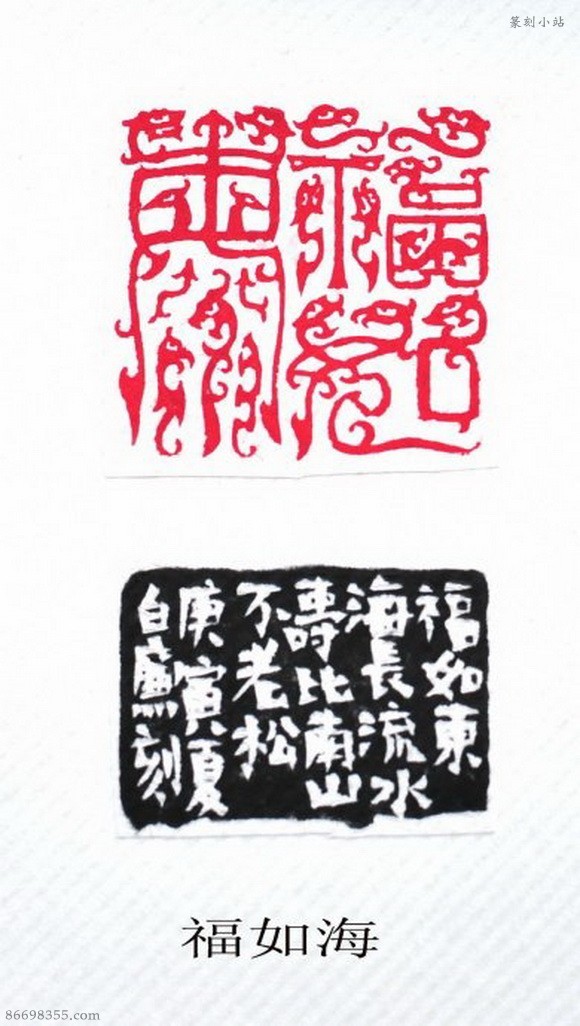 篆刻小站
福如東
海長流水
壽比南山
不老松
庚寅夏
白廉刻
福如海
86698355.com